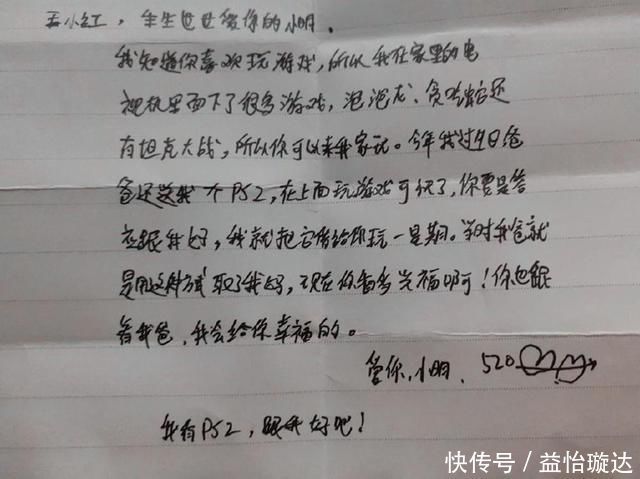 王小红，生生世世爱你的小明。
我知道你喜欢玩游戏，所以我在家里的电
视机里面下了很多游戏，泡泡龙、贪吃蛇还
有坦克大战，所以你可以来我家玩。今年我过生日爸
爸还送我一个PS2，在上面玩游戏可快了，你要是答
应跟我好，我就把它借给你玩一星期。当时我爸就
是用这种方式取了我妈，现在你看多幸福啊！你也跟
着我爸，我会给你幸福的。
爱你，小明．520
我有PS2，跟我好吧！
快传号／益怡璇达